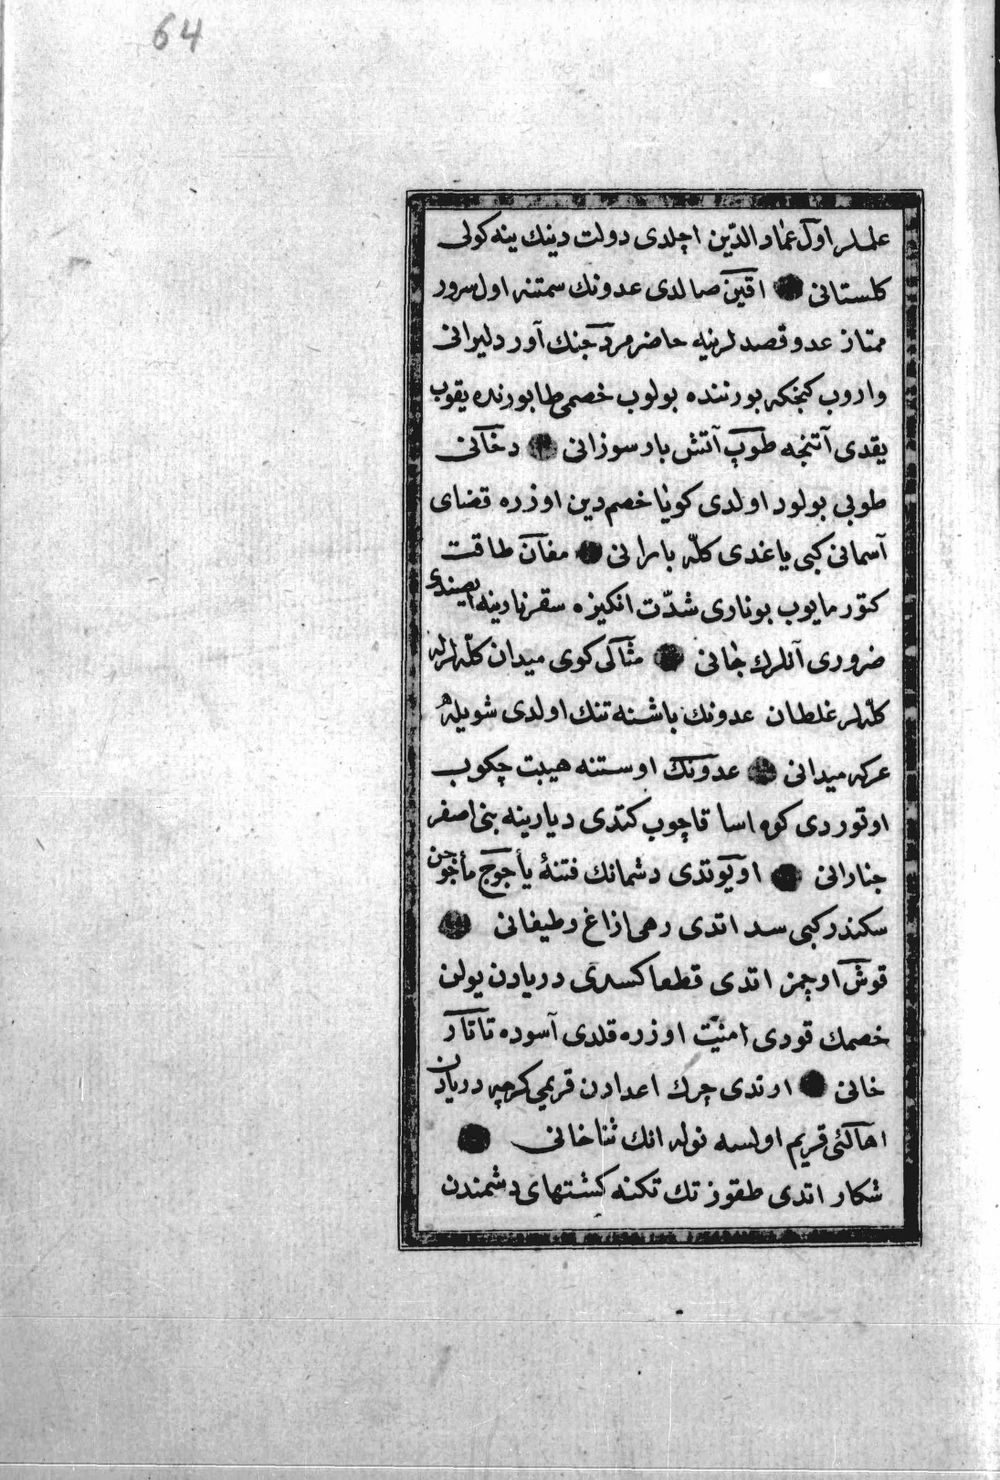 64
علملر اول عماد الدّين اچلدى دولت دينك ينه كولى
كلستانى اقين صالدى عدونك سمتنه اول سرور
ممتاز عدو قصدلرينه حاضر مرد جنك آور دليرانى
واروب كنجكه بورننده بولوب خصمى طابورنده يقوب
يقدى آتنجه طوپ آتش بار سوزانى دخانى
طوبى بولود اولدى كويا خصم دين اوزره قضاى
آسمانى كبى ياغدى كلّه بارانى مغان طاقت
كتورمايوب بو نارى شدّت انكيزه سقر نارينه ايصيندى
ضرورى آنلرك جانى مثال كوى ميدان كلّه لرله
كلّه لر غلطان عدونك باشنه تنك اولدى شويله
عركه ميدانى عدونك اوستنه هيبت چكوب
اوتوردى كوه اسا قاچوب كتدى ديارينه بنى اصفر
اويوتدى دشمانك فتنۀ يأجوج مأجوجن
سكندر كبى سد اتدى رهى ازاغ وطيفانى
قوش اوچمز اتدى قطعا كسدى دريادن يولن
خصمك قودى امنيّت اوزره قلدى آسوده تاتار
خانى اوتدى چرك اعدادن قريمى كرچه دريادن
اهالئ قريم اولسه نوله انك ثنا خانى
شكار اتدى طقوز تك تكنه كشتيهاى دشمندن